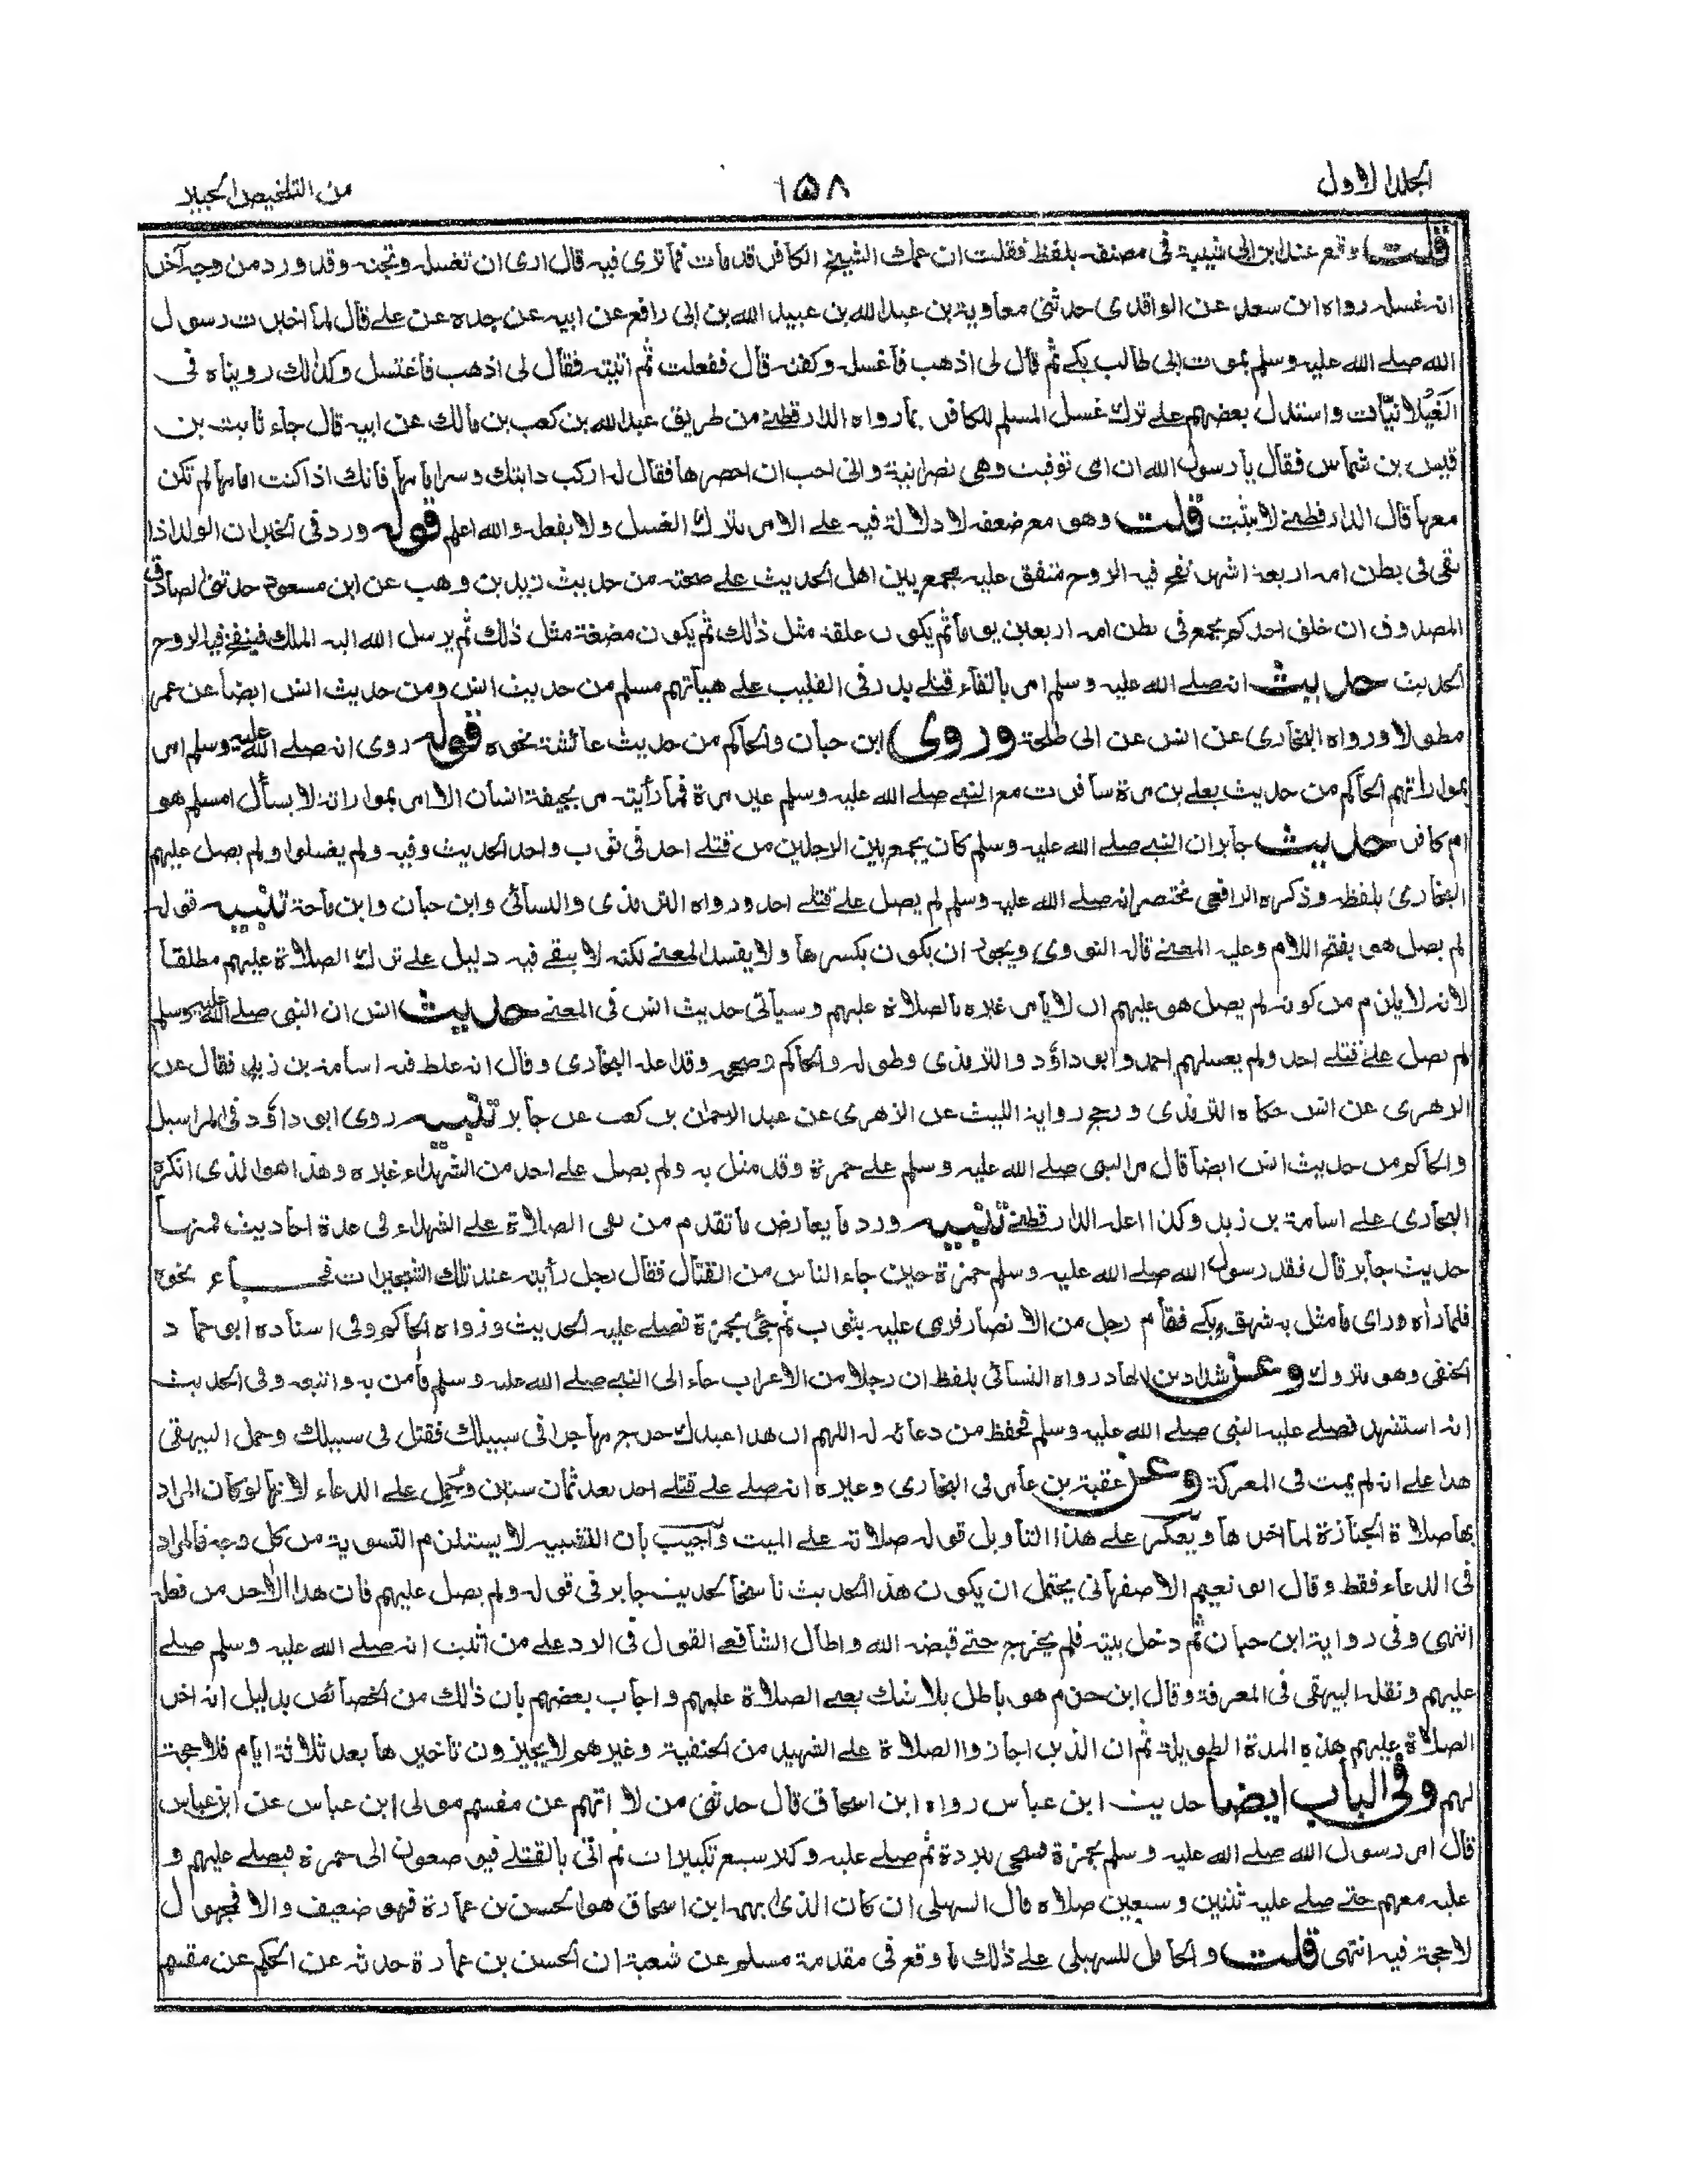 الجلد الاول
١٥٨
من التلخيص الحبير
قلت وقع عند ابن ابى شيبة فى مصنفه بلفظ فقلت ان عمك الشيخ الكافر قد مات فما ترى فيه قال ارى ان تغسله وتجنه وقد ورد من وجه آخر
انه غسله رواه ابن سعد عن الواقدى حدثنى معاوية بن عبد الله بن عبيد الله بن ابى رافع عن ابيه عن جده عن على قال لما اخبرت رسول
الله صلى الله عليه وسلم بموت ابى طالب بكى ثم قال لى اذهب فاغسله وكفنه قال ففعلت ثم اتيته فقال لى اذهب فاغتسل وكذلك رويناه فى
الغيلانيات واستدل بعضهم على ترك غسل المسلم للكافر بما رواه الدارقطنى من طريق عبد الله بن كعب بن مالك عن ابيه قال جاء ثابت بن
قيس بن شماس فقال يا رسول الله ان امى توفيت وهى نصرانية وانى احب ان احضرها فقال له اركب دابتك وسر امامها فانك اذا كنت امامها لم تكن
معها قال الدارقطنى لا يثبت قلت وهو مع ضعفه لا دلالة فيه على الامر بترك الغسل ولا بفعله والله اعلم قوله ورد فى الخبر ان الولد اذا
بقى فى بطن امه اربعة اشهر نفخ فيه الروح متفق عليه مجمع بين اهل الحديث على صحته من حديث زيد بن وهب عن ابن مسعود حدثنى الصادق
المصدوق ان خلق احدكم يجمع فى بطن امه اربعين يوما ثم يكون علقة مثل ذلك ثم يكون مضغة مثل ذلك ثم يرسل الله اليه الملك فينفخ فيه الروح
الحديث حديث انه صلى الله عليه وسلم امر بالقاء قتلى بدر فى القليب على هيأتهم مسلم من حديث انس ومن حديث انس ايضا عن عمر
مطولا ورواه البخارى عن انس عن ابى طلحة وروى ابن حبان والحاكم من حديث عائشة نحوه قوله روى انه صلى الله عليه وسلم امر
بمواراتهم الحاكم من حديث يعلى بن مرة سافرت مع النبى صلى الله عليه وسلم غير مرة فما رأيته مر بجيفة انسان الا امر بمواراته لا يسأل امسلم هو
ام كافر حديث جابر ان النبى صلى الله عليه وسلم كان يجمع بين الرجلين من قتلى احد فى ثوب واحد الحديث وفيه ولم يغسلوا ولم يصل عليهم
البخارى بلفظه وذكره الرافعى مختصر انه صلى الله عليه وسلم لم يصل على قتلى احد ورواه الترمذى والنسائى وابن حبان وابن ماجة تنبيه قوله
لم يصل هو بفتح اللام وعليه المعنى قاله النووى ويجوز ان يكون بكسرها ولا يفسد المعنى لكنه لا يبقى فيه دليل على ترك الصلاة عليهم مطلقا
لانه لا يلزم من كونه لم يصل هو عليهم ان لا يأمر غيره بالصلاة عليهم وسيأتى حديث انس فى المعنى حديث انس ان النبى صلى الله عليه وسلم
لم يصل على قتلى احد ولم يغسلهم احمد وابو داؤد والترمذى وطوله والحاكم وصححه وقد اعله البخارى وقال انه غلط فيه اسامة بن زيد فقال عن
الزهرى عن انس حكاه الترمذى ورجح رواية الليث عن الزهرى عن عبد الرحمان بن كعب عن جابر تنبيه روى ابو داؤد فى المراسيل
والحاكم من حديث انس ايضا قال مر النبى صلى الله عليه وسلم على حمزة وقد مثل به ولم يصل على احد من الشهداء غيره وهذا هو الذى انكره
البخارى على اسامة بن زيد وكذا اعله الدارقطنى تنبيه ورد ما يعارض ما تقدم من نفى الصلاة على الشهداء فى عدة احاديث فمنها
حديث جابر قال فقد رسول الله صلى الله عليه وسلم حمزة حين جاء الناس من القتال فقال رجل رأيته عند تلك الشجيرات فجاء نحوه
فلما رأه ورأى ما مثل به شهق وبكى فقام رجل من الانصار فرمى عليه بثوب ثم جئ بحمزة فصلى عليه الحديث ورواه الحاكم وفى اسناده ابو حماد
الحنفى وهو متروك وعن شداد بن الهاد رواه النسائى بلفظ ان رجلا من الاعراب جاء الى النبى صلى الله عليه وسلم فآمن به واتبعه وفى الحديث
انه استشهد فصلى عليه النبى صلى الله عليه وسلم فحفظ من دعائه له اللهم ان هذا عبدك خرج مهاجرا فى سبيلك فقتل فى سبيلك وحمل البيهقى
هذا على انه لم يمت فى المعركة وعن عقبة بن عامر فى البخارى وغيره انه صلى على قتلى احد بعد ثمان سنين وحمل على الدعاء لانها لو كان المراد
بها صلاة الجنازة لما اخرها ويعكر على هذا التأويل قوله صلاته على الميت واجيب بان التشبيه لا يستلزم التسوية من كل وجه فالمراد
فى الدعاء فقط وقال ابو نعيم الاصفهانى يحتمل ان يكون هذا الحديث ناسخا لحديث جابر فى قوله ولم يصل عليهم فان هذا الآخر من فعله
انتهى وفى رواية ابن حبان ثم دخل بيته فلم يخرج حتى قبضه الله واطال الشافعى القول فى الرد على من اثبت انه صلى الله عليه وسلم صلى
عليهم ونقله البيهقى فى المعرفة وقال ابن حزم هو باطل بلا شك يعنى الصلاة عليهم واجاب بعضهم بان ذلك من الخصائص بدليل انه اخر
الصلاة عليهم هذه المدة الطويلة ثم ان الذين اجازوا الصلاة على الشهيد من الحنفية وغيرهم لا يجيزون تأخيرها بعد ثلاثة ايام فلا حجة
لهم وفى الباب ايضا حديث ابن عباس رواه ابن اسحاق قال حدثنى من لا اتهم عن مقسم مولى ابن عباس عن ابن عباس
قال امر رسول الله صلى الله عليه وسلم بحمزة فسجى ببردة ثم صلى عليه وكبر سبع تكبيرات ثم اتى بالقتلى فيوضعون الى حمزة فيصلى عليهم و
عليه معهم حتى صلى عليه ثنتين وسبعين صلاة قال السهيلى ان كان الذى ابهمه ابن اسحاق هو الحسن بن عمارة فهو ضعيف والا فمجهول
لا حجة فيه انتهى قلت والحامل للسهيلى على ذلك ما وقع فى مقدمة مسلم عن شعبة ان الحسن بن عمارة حدثه عن الحكم عن مقسم